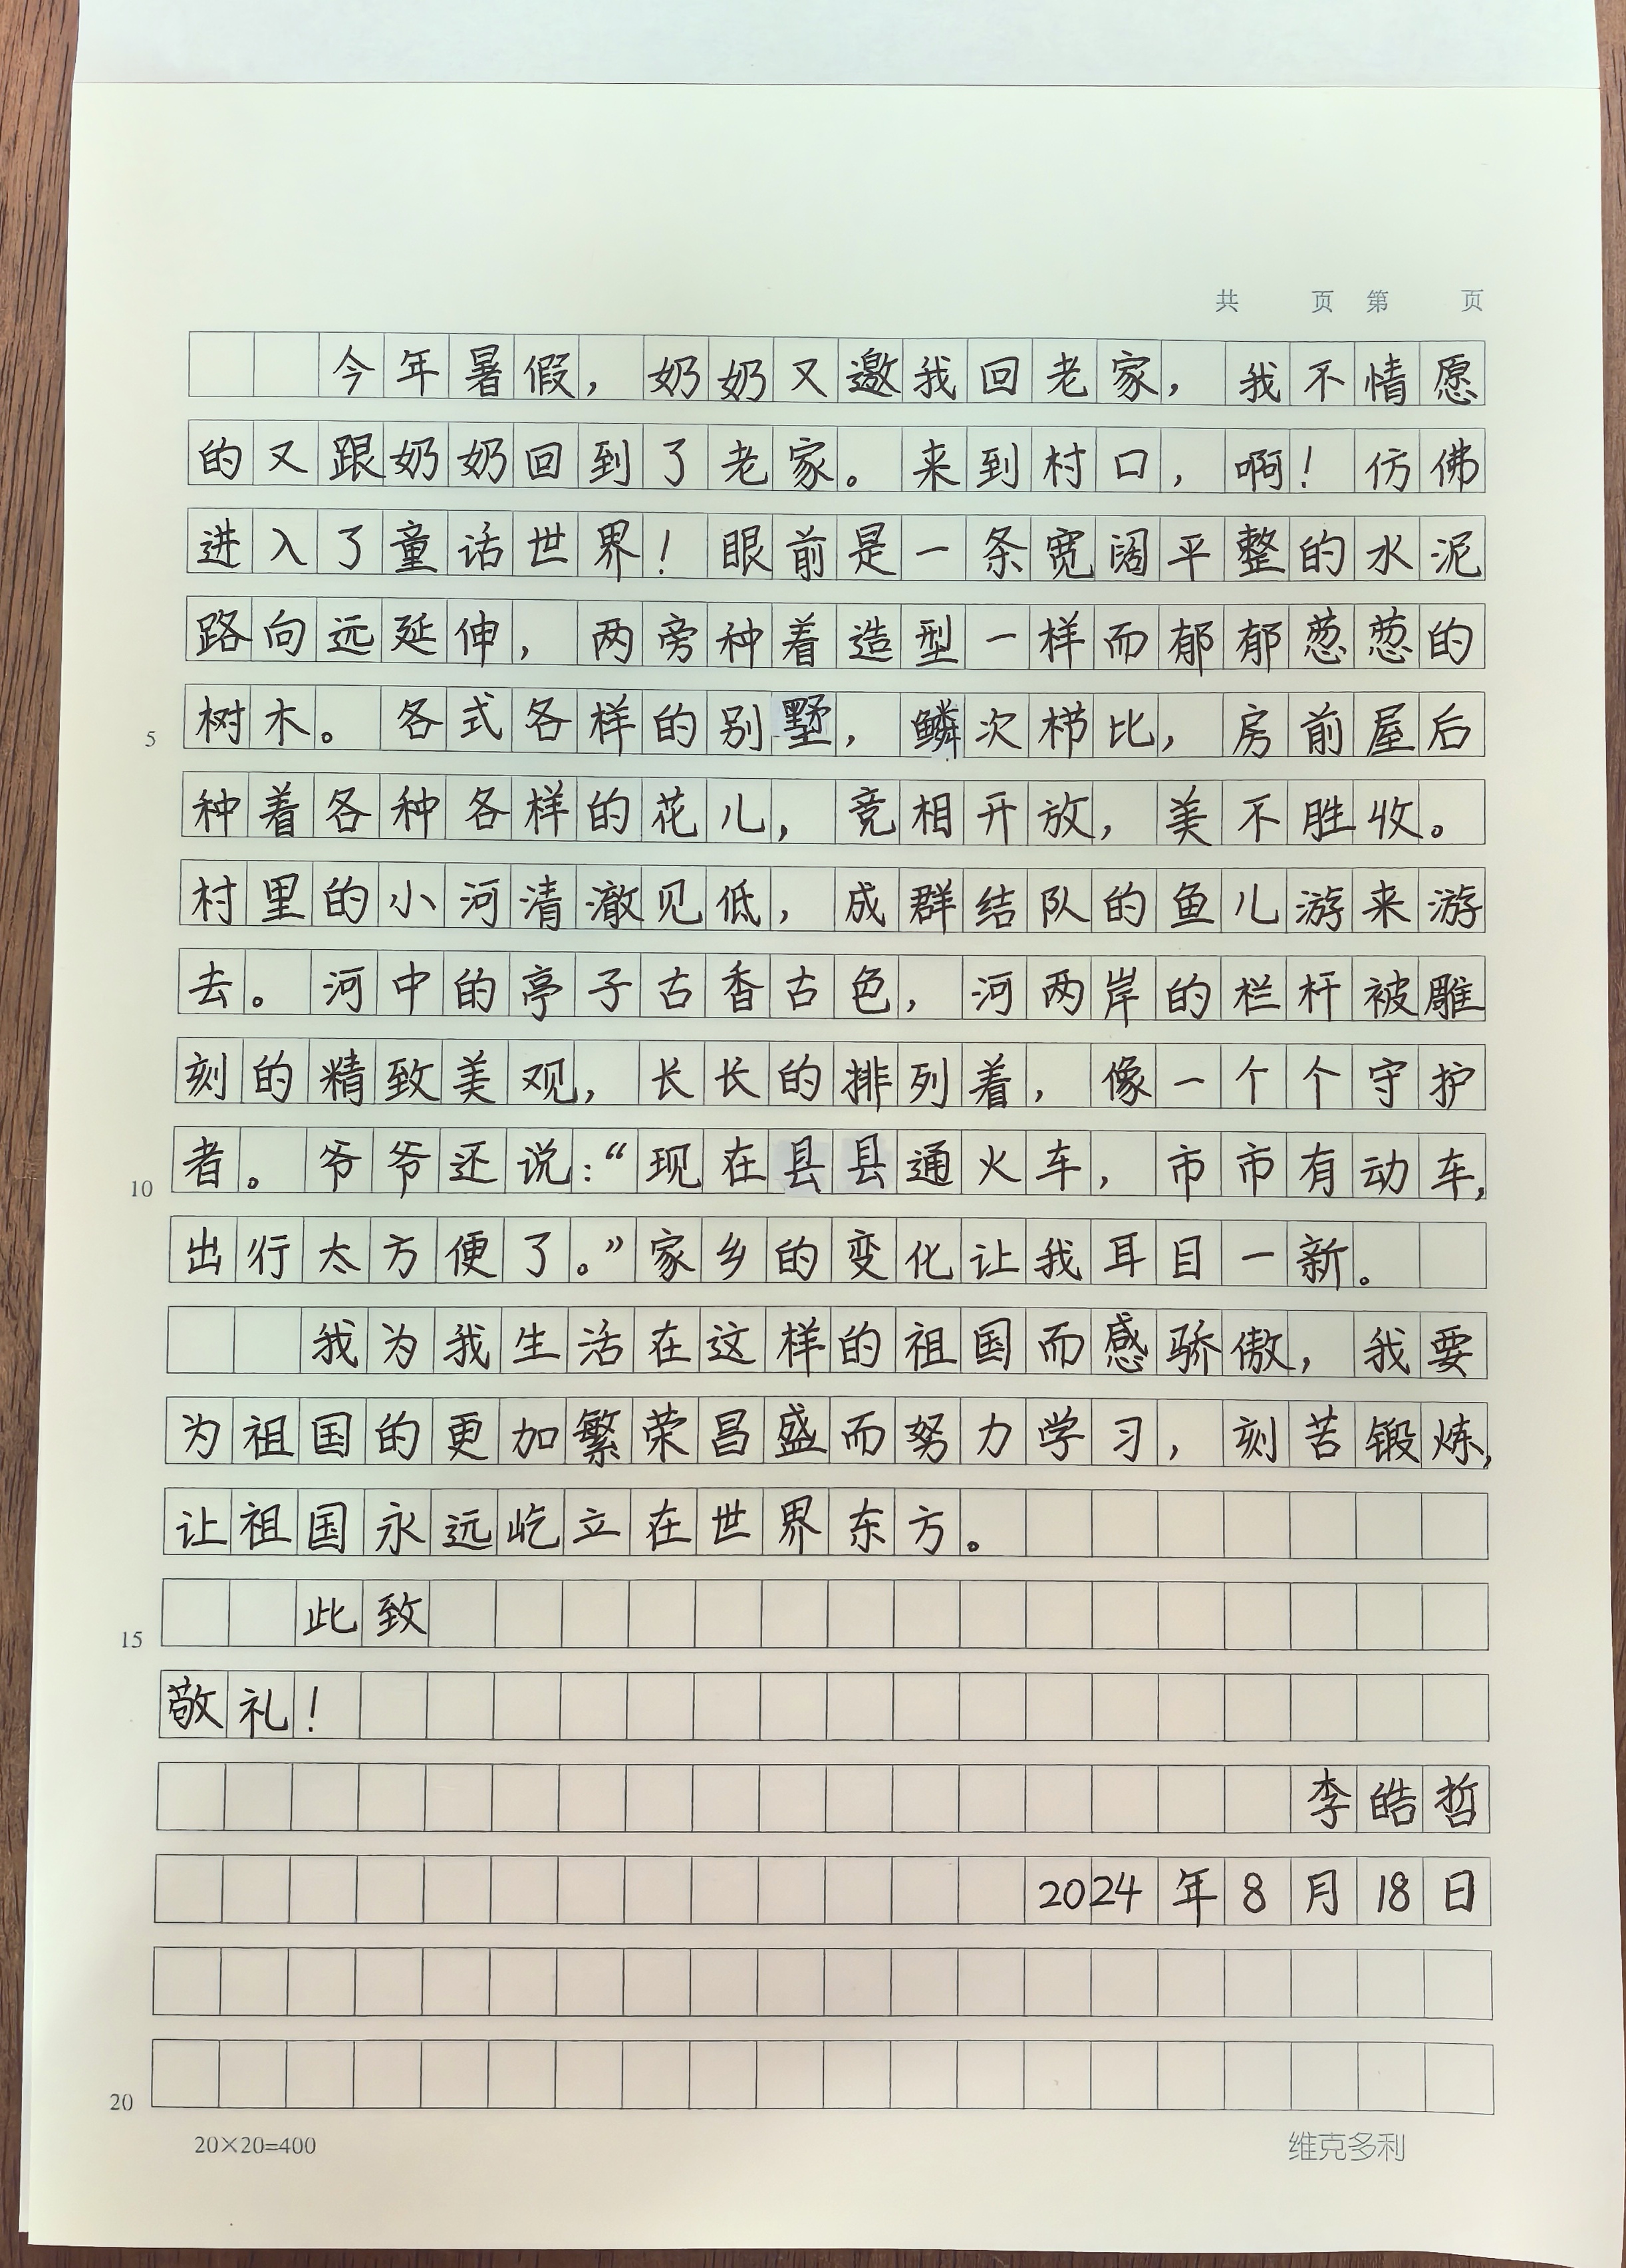 共 页 第 页
今年暑假，奶奶又邀我回老家，我不情愿
的又跟奶奶回到了老家。来到村口，啊！仿佛
进入了童话世界！眼前是一条宽阔平整的水泥
路向远延伸，两旁种着造型一样而郁郁葱葱的
树木。各式各样的别墅，鳞次栉比，房前屋后
5
种着各种各样的花儿，竞相开放，美不胜收。
村里的小河清澈见低，成群结队的鱼儿游来游
去。河中的亭子古香古色，河两岸的栏杆被雕
刻的精致美观，长长的排列着，像一个个守护
者。爷爷还说：“现在县县通火车，市市有动车，
10
出行太方便了。”家乡的变化让我耳目一新。
我为我生活在这样的祖国而感骄傲，我要
为祖国的更加繁荣昌盛而努力学习，刻苦锻炼，
让祖国永远屹立在世界东方。
此致
15
敬礼！
李皓哲
2024年8月18日
20
20×20=400 维克多利